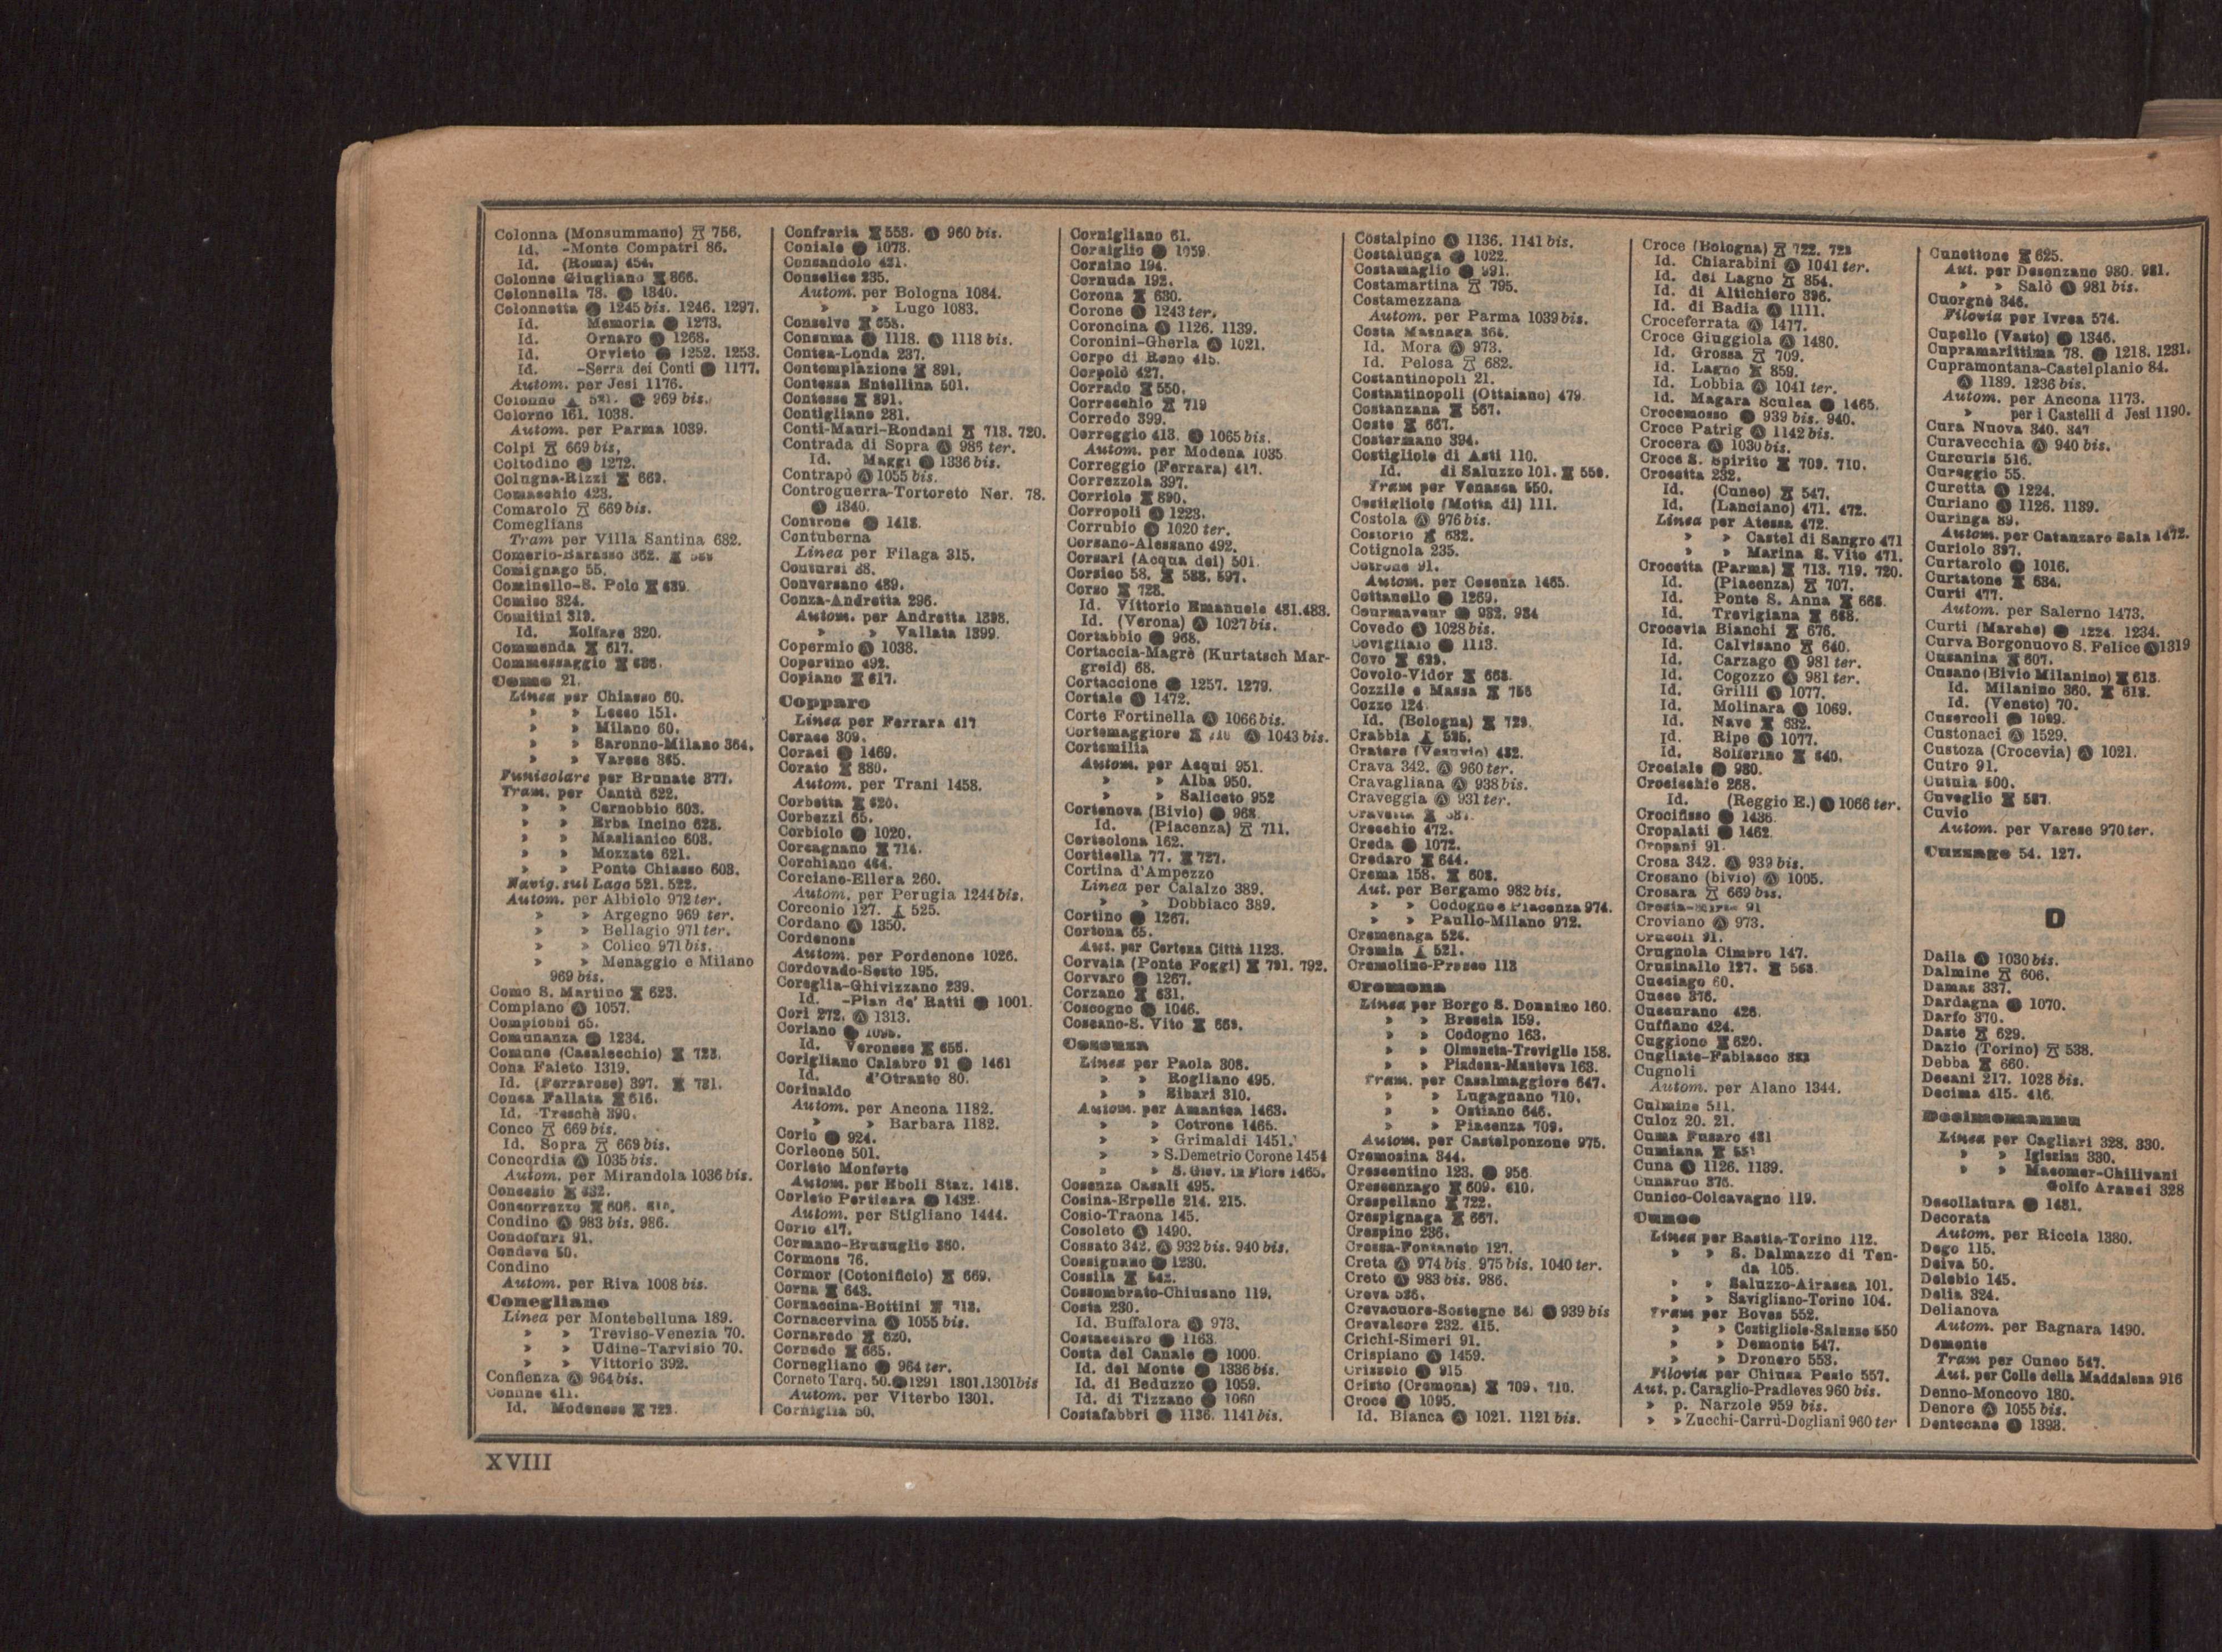 Colonna (Monsummano) 756.
Id. -Monte Compatri 86.
Id. (Roma) 454.
Colonne Giugliano 866.
Colonnella 78. 1340.
Colonnetta 1245 bis. 1246. 1297.
Id. Memoria 1273.
Id. Ornaro 1268.
Id. Orvieto 1252. 1253.
Id. -Serra dei Conti 1177.
Autom. per Jesi 1176.
Colonno 521. 969 bis.
Colorno 161. 1038.
Autom. per Parma 1039.
Colpi 669 bis.
Coltodino 1272.
Colugna-Rizzi 669.
Comacchio 423.
Comarolo 669 bis.
Comeglians
Tram per Villa Santina 682.
Comerio-Barasso 362.
Comignago 55.
Cominello-S. Polo 639.
Comiso 324.
Comitini 319.
Id. Zolfare 320.
Commenda 617.
Commessaggio 636.
Como 21.
Linea per Chiasso 60.
» » Lecco 151.
» » Milano 60.
» » Saronno-Milano 364.
» » Varese 365.
Funicolare per Brunate 377.
Tram. per Cantù 622.
» » Cernobbio 603.
» » Erba Incino 623.
» » Maslianico 603.
» » Mozzate 621.
» » Ponte Chiasso 603.
Navig. sul Lago 521. 522.
Autom. per Albiolo 972 ter.
» » Argegno 969 ter.
» » Bellagio 971 ter.
» » Colico 971 bis.
» » Menaggio e Milano
969 bis.
Como S. Martino 623.
Compiano Ⓐ 1057.
Compiobbi 65.
Comunanza 1234.
Comune (Casalecchio) 723.
Cona Faleto 1319.
Id. (Ferrarese) 397. 731.
Conca Fallata 616.
Id. -Treschè 390.
Conco 669 bis.
Id. Sopra 669 bis.
Concordia Ⓐ 1035 bis.
Autom. per Mirandola 1036 bis.
Concesio 632.
Concorrezzo 608. 610.
Condino Ⓐ 983 bis. 986.
Condofuri 91.
Condove 50.
Condino
Autom. per Riva 1008 bis.
Conegliano
Linea per Montebelluna 189.
» » Treviso-Venezia 70.
» » Udine-Tarvisio 70.
» » Vittorio 392.
Confienza Ⓐ 964 bis.
Confine 411.
Id. Modenese 723.
Confreria 553. 960 bis.
Coniale 1073.
Consandolo 421.
Conselice 235.
Autom. per Bologna 1084.
» » Lugo 1083.
Conselve 658.
Consuma 1118. Ⓐ 1118 bis.
Contea-Londa 237.
Contemplazione 891.
Contessa Entellina 501.
Contesse 891.
Contigliano 281.
Conti-Mauri-Rondani 713. 720.
Contrada di Sopra Ⓐ 986 ter.
Id. Maggi 1336 bis.
Contrapò Ⓐ 1055 bis.
Controguerra-Tortoreto Ner. 78.
1340.
Controne 1418.
Contuberna
Linea per Filaga 315.
Contursi 88.
Conversano 489.
Conza-Andretta 296.
Autom. per Andretta 1398.
» » Vallata 1399.
Copermio Ⓐ 1038.
Copertino 492.
Copiano 617.
Copparo
Linea per Ferrara 417
Corace 309.
Coraci 1469.
Corato 880.
Autom. per Trani 1458.
Corbetta 620.
Corbezzi 65.
Corbiolo 1020.
Corcagnano 714.
Corchiano 464.
Corciano-Ellera 260.
Autom. per Perugia 1244 bis.
Corconio 127. 525.
Cordano Ⓐ 1350.
Cordenons
Autom. per Pordenone 1026.
Cordovado-Sesto 195.
Coreglia-Ghivizzano 239.
Id. -Pian de' Ratti 1001.
Cori 272. Ⓐ 1313.
Coriano
Id. Veronese 656.
Corigliano Calabro 91 1461
Id. d'Otranto 80.
Corinaldo
Autom. per Ancona 1182.
» » Barbara 1182.
Corio 924.
Corleone 501.
Corleto Monforte
Autom. per Eboli Staz. 1418.
Corleto Perticara 1432.
Autom. per Stigliano 1444.
Corlo 417.
Cormano-Brusuglio 360.
Cormons 76.
Cormor (Cotonificio) 669.
Corna 643.
Cornaccina-Bottini 713.
Cornacervina Ⓐ 1055 bis.
Cornaredo 620.
Cornedo 665.
Cornegliano 964 ter.
Corneto Tarq. 50. 1291 1301. 1301 bis
Autom. per Viterbo 1301.
Corniglia 50.
Cornigliano 61.
Corniglio 1059.
Cornino 194.
Cornuda 192.
Corona 630.
Corone 1243 ter.
Coroncina Ⓐ 1126. 1139.
Coronini-Gherla Ⓐ 1021.
Corpo di Reno 415.
Corpolò 427.
Corrado 550.
Correcchio 719
Corredo 399.
Correggio 413. 1065 bis.
Autom. per Modena 1035
Correggio (Ferrara) 417.
Correzzola 397.
Corriolo 890.
Corropoli 1223.
Corrubio 1020 ter.
Corsano-Alessano 492.
Corsari (Acqua dei) 501.
Corsico 58. 588. 597.
Corso 728.
Id. Vittorio Emanuele 481. 483.
Id. (Verona) Ⓐ 1027 bis.
Cortabbio 968.
Cortaccia-Magrè (Kurtatsch Mar-
greid) 68.
Cortaccione 1257. 1279.
Cortale Ⓐ 1472.
Corte Fortinella Ⓐ 1066 bis.
Cortemaggiore Ⓐ 1043 bis.
Cortemilia
Autom. per Acqui 951.
» » Alba 950.
» » Saliceto 952
Cortenova (Bivio) 968
Id. (Piacenza) 711.
Corteolona 162.
Corticella 77. 727.
Cortina d'Ampezzo
Linea per Calalzo 389.
» » Dobbiaco 389.
Cortino 1267.
Cortona 65.
Aut. per Cortona Città 1123.
Corvaia (Ponte Foggi) 791. 792.
Corvaro 1267.
Corzano 631.
Coscogno 1046.
Coseano-S. Vito 669.
Cosenza
Linea per Paola 308.
» » Rogliano 495.
» » Sibari 310.
Autom. per Amantea 1463.
» » Cotrone 1465.
» » Grimaldi 1451.
» » S. Demetrio Corone 1454
» » S. Giov. in Fiore 1465.
Cosenza Casali 495.
Cosina-Erpelle 214. 215.
Cosio-Traona 145.
Cosoleto Ⓐ 1490.
Cossato 342. Ⓐ 932 bis. 940 bis.
Cossignano 1230.
Cossila 542.
Cossombrato-Chiusano 119.
Costa 230.
Id. Buffalora Ⓐ 973.
Costacciaro 1163.
Costa del Canale 1000.
Id. del Monte 1336 bis.
Id. di Beduzzo 1059.
Id. di Tizzano 1060
Costafabbri 1136. 1141 bis.
Costalpino Ⓐ 1136. 1141 bis.
Costalunga 1022.
Costamaglio 991.
Costamartina 795.
Costamezzana
Autom. per Parma 1039 bis.
Costa Masnaga 364.
Id. Mora Ⓐ 973.
Id. Pelosa 682.
Costantinopoli 21.
Costantinopoli (Ottaiano) 479.
Costanzana 567.
Coste 667.
Costermano 394.
Costigliole di Asti 110.
Id. di Saluzzo 101. 559.
Tram per Venasca 550.
Costigliole (Motta di) 111.
Costola Ⓐ 976 bis.
Costorio 632.
Cotignola 235.
Cotrone 91.
Autom. per Cosenza 1465.
Cottanello 1269.
Courmayeur 932. 934
Covedo Ⓐ 1028 bis.
Covigliaio 1113.
Covo 629.
Covolo-Vidor 668.
Cozzile e Massa 756
Cozzo 124
Id. (Bologna) 723.
Crabbia 525.
Cratere (Vesuvio) 482.
Crava 342. Ⓐ 960 ter.
Cravagliana Ⓐ 938 bis.
Craveggia Ⓐ 931 ter.
Crecchio 472.
Creda 1072.
Credaro 644.
Crema 158. 608.
Aut. per Bergamo 982 bis.
» » Codogno e Piacenza 974.
» » Paullo-Milano 972.
Cremenaga 524.
Cremia 521.
Cremolino-Prasco 113
Cremona
Linea per Borgo S. Donnino 160.
» » Brescia 159.
» » Codogno 163.
» » Olmeneta-Treviglio 158.
» » Piadena-Mantova 163.
Tram. per Casalmaggiore 647.
» » Lugagnano 710.
» » Ostiano 646.
» » Piacenza 709.
Autom. per Castelponzone 975.
Cremosina 344.
Crescentino 123. 956
Crescenzago 609. 610.
Crespellano 722.
Crespignaga 667.
Crespino 236.
Cressa-Fontaneto 127.
Creta Ⓐ 974 bis. 975 bis. 1040 ter.
Creto Ⓐ 983 bis. 986.
Creva 526.
Crevacuore-Sostegno 341 939 bis
Crevalcore 232. 415.
Crichi-Simeri 91.
Crispiano Ⓐ 1459.
Crissolo 915
Cristo (Cremona) 709. 710.
Croce 1095.
Id. Bianca Ⓐ 1021. 1121 bis.
Croce (Bologna) 722. 723
Id. Chiarabini Ⓐ 1041 ter.
Id. del Lagno 854.
Id. di Altichiero 396.
Id. di Badia Ⓐ 1111.
Croceferrata Ⓐ 1477.
Croce Giuggiola Ⓐ 1480.
Id. Grossa 709.
Id. Lagno 859.
Id. Lobbia Ⓐ 1041 ter.
Id. Magara Sculca 1465.
Crocemosso 939 bis. 940.
Croce Patrig Ⓐ 1142 bis.
Crocera Ⓐ 1030 bis.
Croce S. Spirito 709. 710.
Crocetta 232.
Id. (Cuneo) 547.
Id. (Lanciano) 471. 472.
Linea per Atessa 472.
» » Castel di Sangro 471
» » Marina S. Vito 471.
Crocetta (Parma) 713. 719. 720.
Id. (Piacenza) 707.
Id. Ponte S. Anna 668.
Id. Trevigiana 668.
Crocevia Bianchi 676.
Id. Calvisano 640.
Id. Carzago Ⓐ 981 ter.
Id. Cogozzo Ⓐ 981 ter.
Id. Grilli 1077.
Id. Molinara 1069.
Id. Nave 632.
Id. Ripe 1077.
Id. Solferino 640.
Crociale 980.
Crocicchie 268.
Id. (Reggio E.) 1066 ter.
Crocifisso 1436.
Cropalati 1462.
Cropani 91.
Crosa 342. Ⓐ 939 bis.
Crosano (bivio) Ⓐ 1005.
Crosara 669 bis.
Croviano Ⓐ 973.
Crucoli 91.
Crugnola Cimbro 147.
Crusinallo 127. 563.
Cucciago 60.
Cucco 376.
Cuccurano 426.
Cuffiano 424.
Cuggiono 620.
Cugliate-Fabiasco 383
Cugnoli
Autom. per Alano 1344.
Culmine 511.
Culoz 20. 21.
Cuma Fusaro 481
Cumiana 551
Cuna Ⓐ 1126. 1139.
Cunardo 376.
Cunico-Colcavagno 119.
Cuneo
Linea per Bastia-Torino 112.
» » S. Dalmazzo di Ten-
da 105.
» » Saluzzo-Airasca 101.
» » Savigliano-Torino 104.
Tram per Boves 552.
» » Costigliole-Saluzzo 550
» » Demonte 547.
» » Dronero 553.
Filovia per Chiusa Pesio 557.
Aut. p. Caraglio-Pradleves 960 bis.
» p. Narzole 959 bis.
» » Zucchi-Carrù-Dogliani 960 ter
Cunettone 625.
Aut. per Desenzano 980. 981.
» » Salò Ⓐ 981 bis.
Cuorgnè 346.
Filovia per Ivrea 574.
Cupello (Vasto) 1346.
Cupramarittima 78. 1218. 1231.
Cupramontana-Castelplanio 84.
Ⓐ 1189. 1236 bis.
Autom. per Ancona 1173.
» per i Castelli d Jesi 1190.
Cura Nuova 340. 347
Curavecchia Ⓐ 940 bis.
Curcuris 516.
Cureggio 55.
Curetta Ⓐ 1224.
Curiano Ⓐ 1126. 1139.
Curinga 89.
Autom. per Catanzaro Sala 1472.
Curiolo 397.
Curtarolo 1016.
Curtatone 634.
Curti 477.
Autom. per Salerno 1473.
Curti (Marche) 1224. 1234.
Curva Borgonuovo S. Felice Ⓐ 1319
Cusanina 607.
Cusano (Bivio Milanino) 613.
Id. Milanino 360. 613.
Id. (Veneto) 70.
Cusercoli 1099.
Custonaci Ⓐ 1529.
Custoza (Crocevia) Ⓐ 1021.
Cutro 91.
Cutula 500.
Cuveglio 587.
Cuvio
Autom. per Varese 970 ter.
Cuzzago 54. 127.
D
Dalla Ⓐ 1030 bis.
Dalmine 606.
Damas 337.
Dardagna 1070.
Darfo 370.
Daste 629.
Dazio (Torino) 538.
Debba 660.
Decani 217. 1028 bis.
Decima 415. 416.
Decimomannu
Linea per Cagliari 328. 330.
» » Iglesias 330.
» » Macomer-Chilivani
Golfo Aranci 328
Decollatura 1481.
Decorata
Autom. per Riccia 1380.
Dego 115.
Deiva 50.
Delebio 145.
Delia 324.
Delianova
Autom. per Bagnara 1490.
Demonte
Tram per Cuneo 547.
Aut. per Colle della Maddalena 916
Denno-Moncovo 180.
Denore Ⓐ 1055 bis.
Dentecane 1393.
XVIII